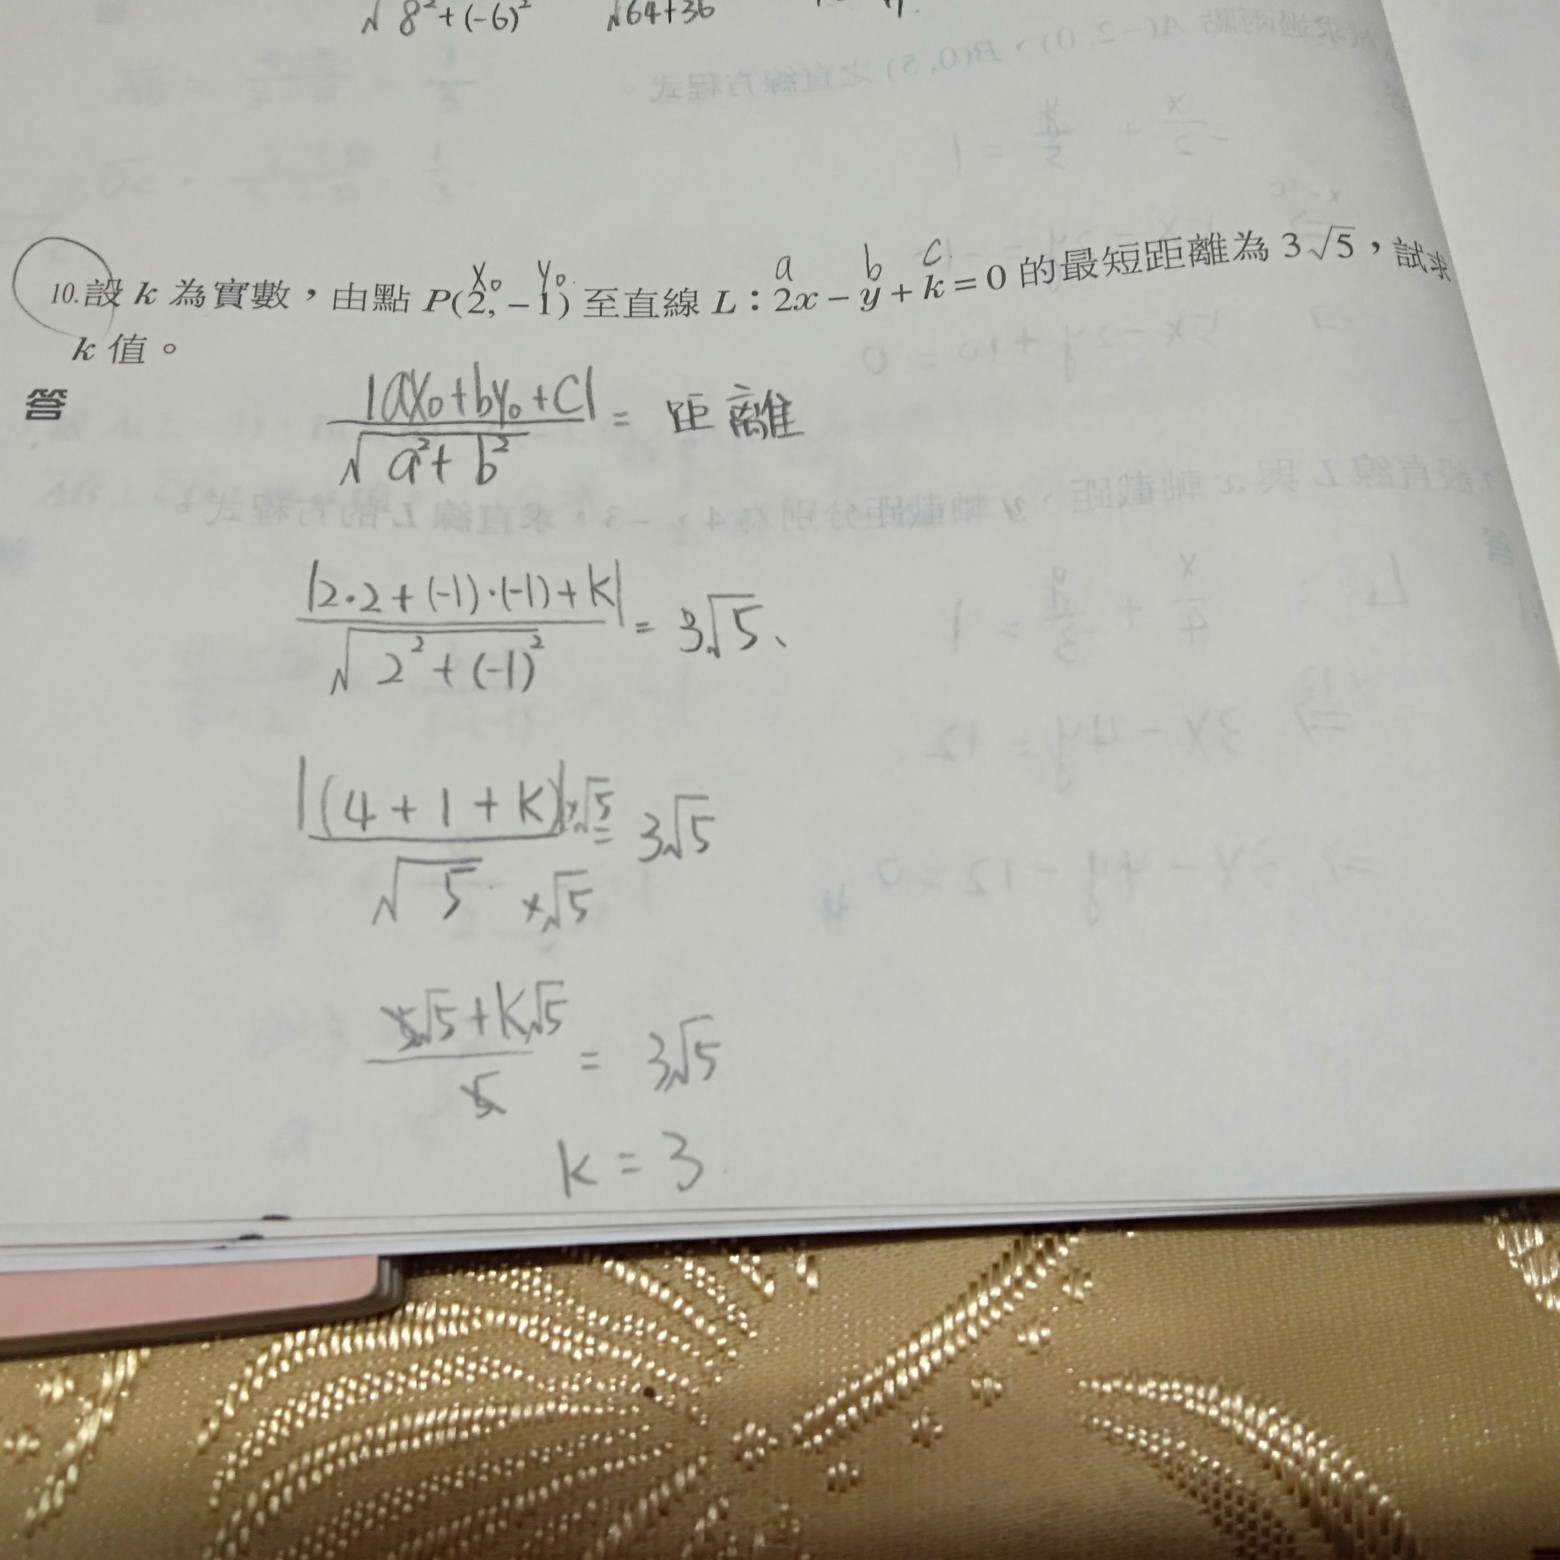 √8²+(-6)² √64+36
10.設 k 為實數，由點 P(2, −1) 至直線 L：2x − y + k = 0 的最短距離為 3√5，試求
x₀ y₀ a b c
k 值。
答
|ax₀+by₀+c| / √a²+b² = 距離
|2·2+(-1)·(-1)+k| / √2²+(-1)² = 3√5、
|(4+1+k)|×√5 / √5 ×√5 = 3√5
5√5+k√5 / 5 = 3√5
k=3